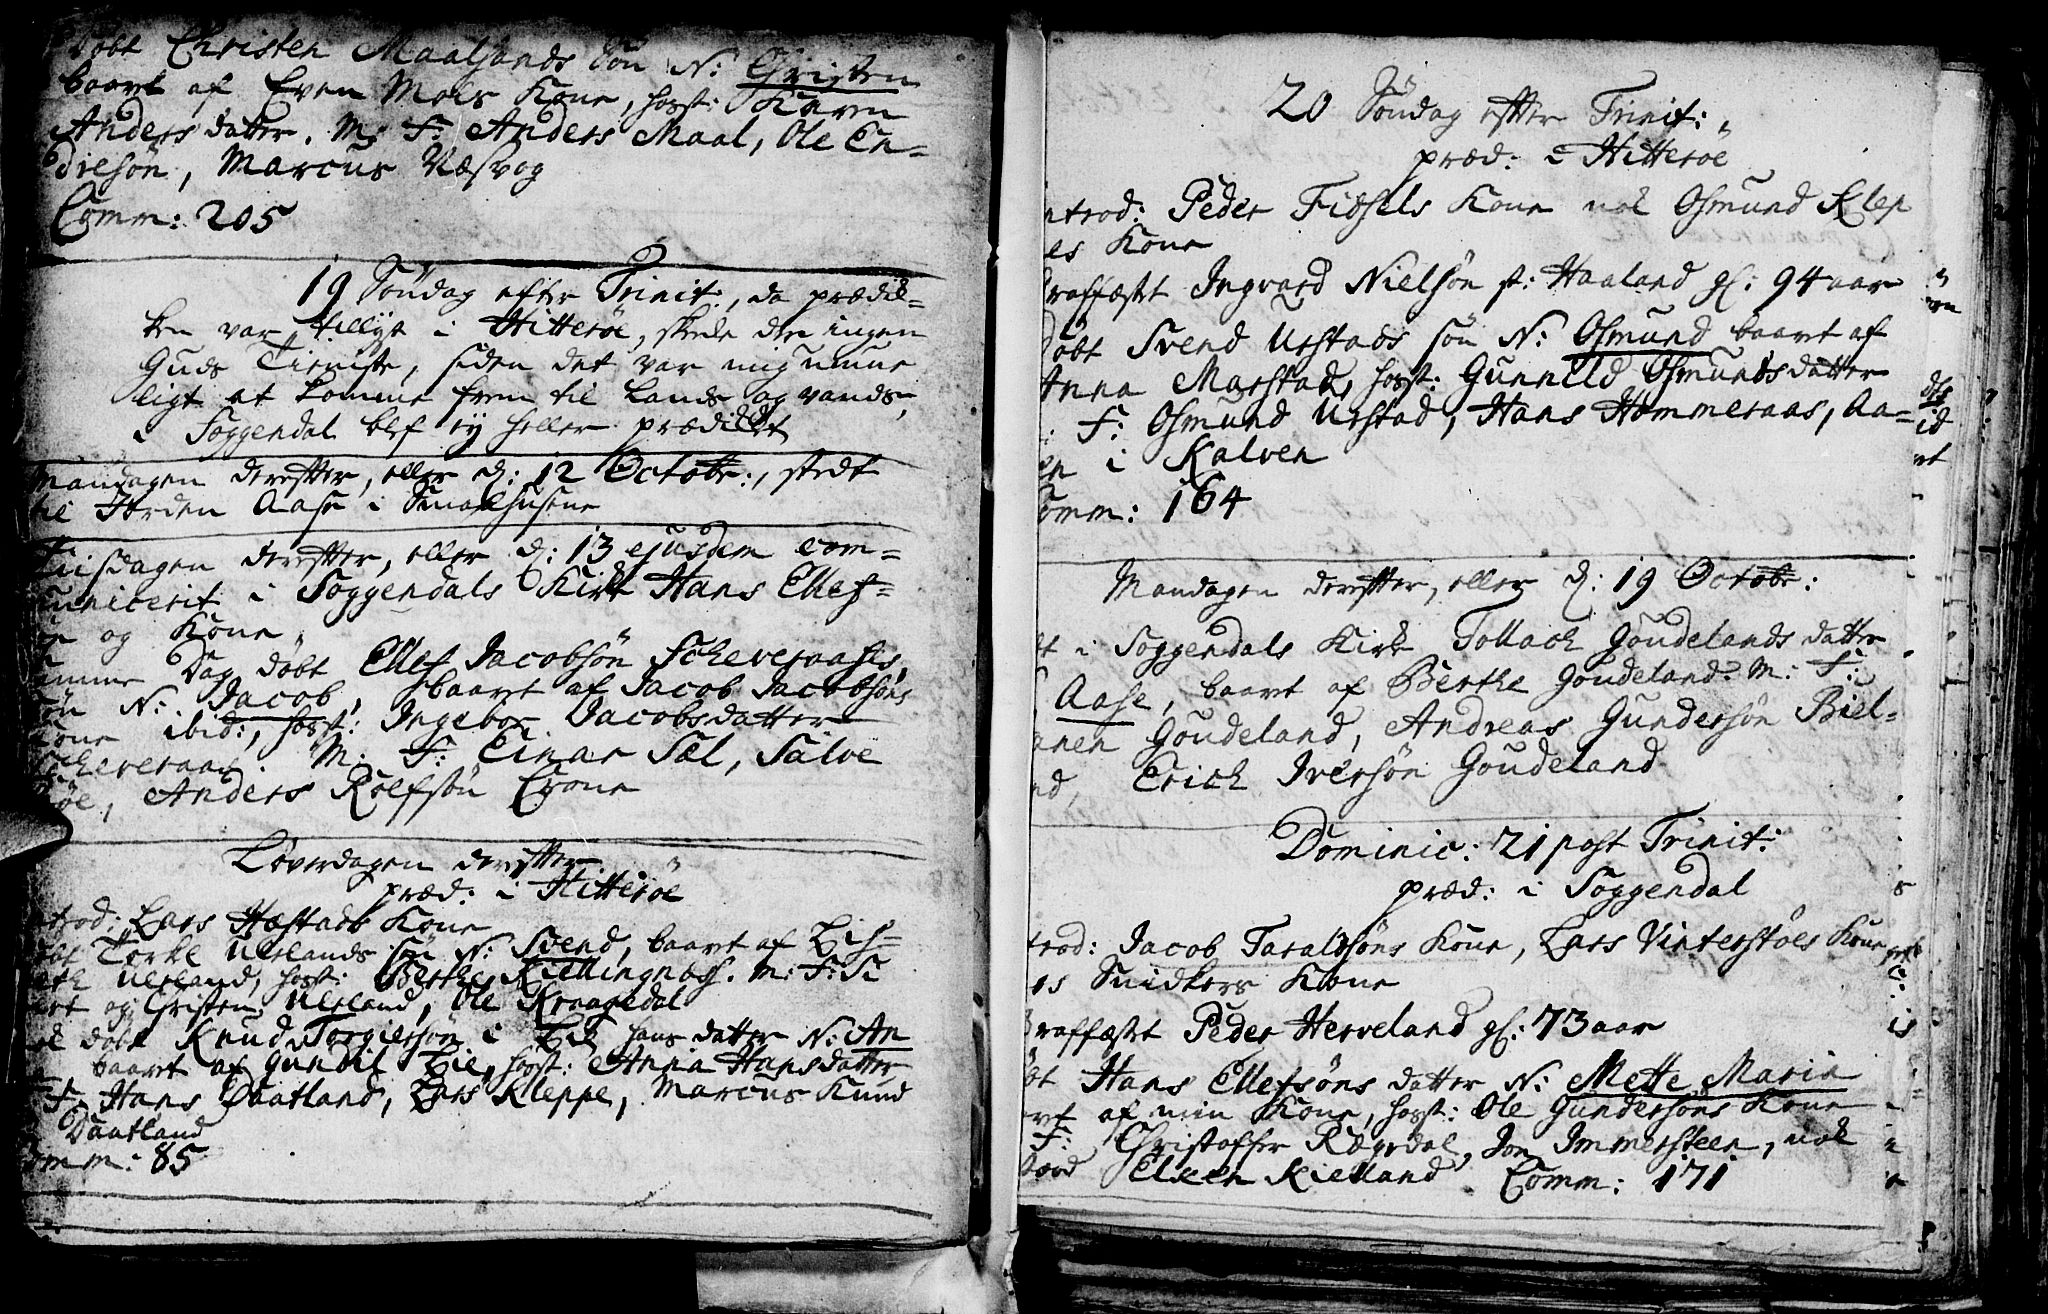 Døbt Christen Maalsands Søn N: Christen
baaret af Even Moes Kone, host: Karen
Andersdatter. M: F: Anders Maal, Ole En-
dresøn, Marcus Næsvog
Comm: 205
19 Søndag efter Trinit:, da prædik-
ken var tillyst i Hitterøe, skede der ingen
Guds Tieniste, siden det var mig umue
ligt at komme frem til Lands og vands,
i Soggendal blef ey heller prædiket
Mandagen derefter, eller d: 12 Octobr:, stedt
til Jorden Aase i Smaalhusene
Tiisdagen derefter, eller d: 13 ejusdem com-
municerit i Soggendals Kirke Hans Ellef-
og Kone.
samme Dag døbt Ellef Jacobsøn Scheveraases
søn N: Jacob, baaret af Jacob Jacobsøns
Kone ibid:, host: Ingebor Jacobsdatter
Scheveraas. M: F: Einar Sæl, Salve
Anders Rolfsøn Crone
Løverdagen derefter
præd: i Hitterøe
Introd: Lars Hæstads Kone
døbt Torke Uerlands søn N: Svend, baaret af Lis-
beth Uerland, host: Berthe Kiellingnæss. M: F: Si
vert og Christen Uerland, Ole Kraagedal
døbt Knud Torgiersøn i Lie hans datter N: An
baaret af Gunbil Lie, host: Anna Hansdatter
F: Hans Daatland, Lars Kleppe, Marcus Knud
Daatland
Comm: 85
20 Søndag efter Trinit:
præd: i Hitterøe
Introd: Peder Fidsels Kone nok Osmund Klep
es Kone
Graffæstet Ingvard Nielsøn st: Haaland gl: 94 aar
Døbt Svend Urstads søn N: Osmund baaret af
Anna Marstad, host: Gunnild Osmundsdatter
F: Osmund Urstad, Hans Hommeraas, Aa-
en i Kalven
Comm: 164
Mandagen derefter, eller d: 19 Octobr:
døbt i Soggendals Kirke Tollach Goudelands datter
Aase, baaret af Berthe Goudeland. M: F:
Goudeland, Andreas Gundersøn Biel-
land, Erich Iversøn Goudeland
Dominic: 21 post Trinit:
præd: i Soggendal
Introd: Jacob Taraldsøns Kone, Lars Vinterstøls Kone
Snidkers Kone
Graffæstet Peder Herveland gl: 73 aar
Døbt Hans Ellefsøns datter N: Mette Marie
baaret af min Kone, host: Ole Gundersøns Kone
F: Christoffer Rægedal, Jon Immersteen, nok
Elken Kielland. Comm: 171